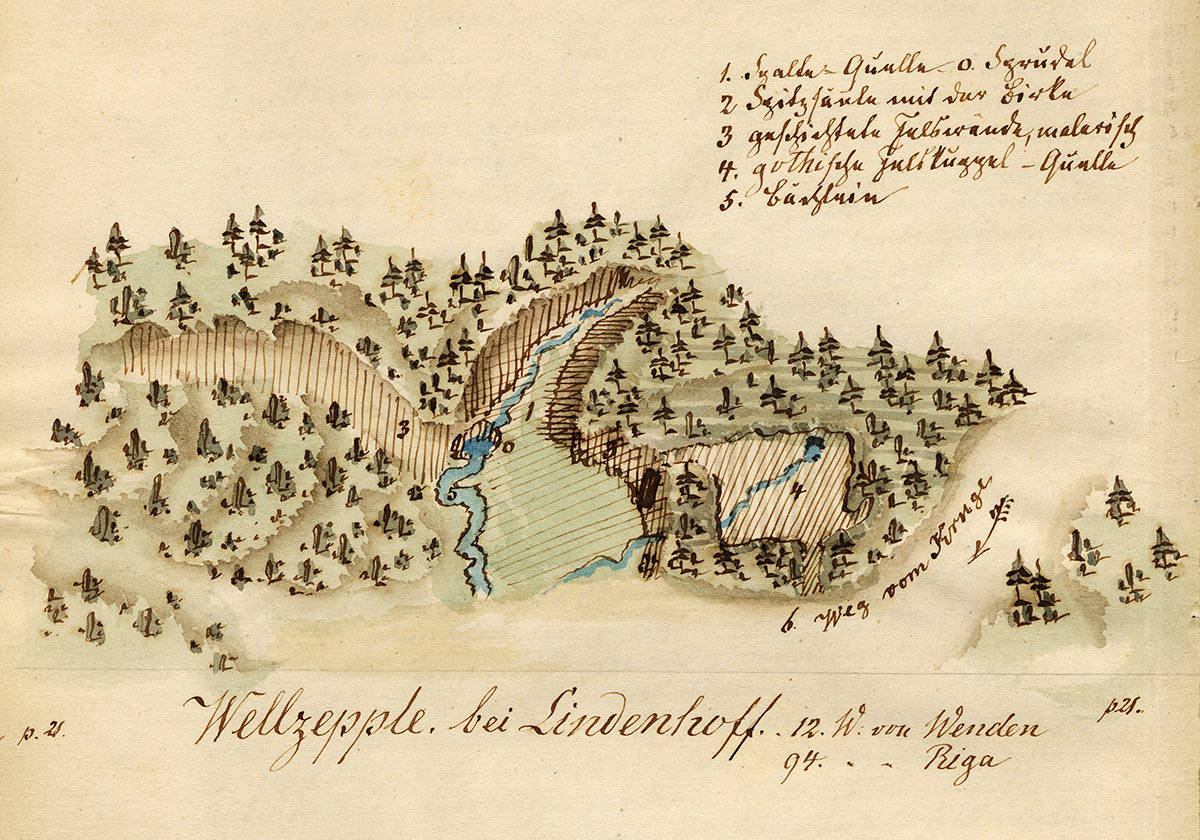 1. Spalte - Quelle o. Sprudel
2 Spitzsäule mit der Birke
3 geschichtete Felswände, malerisch
4. gothische Felskuppel - Quelle
5.
3
1
3
4
6. Weg vom Kruge
Wellzepple. bei Lindenhoff. 12. W. von Wenden
94. " " Riga
p. 21.
p. 21.